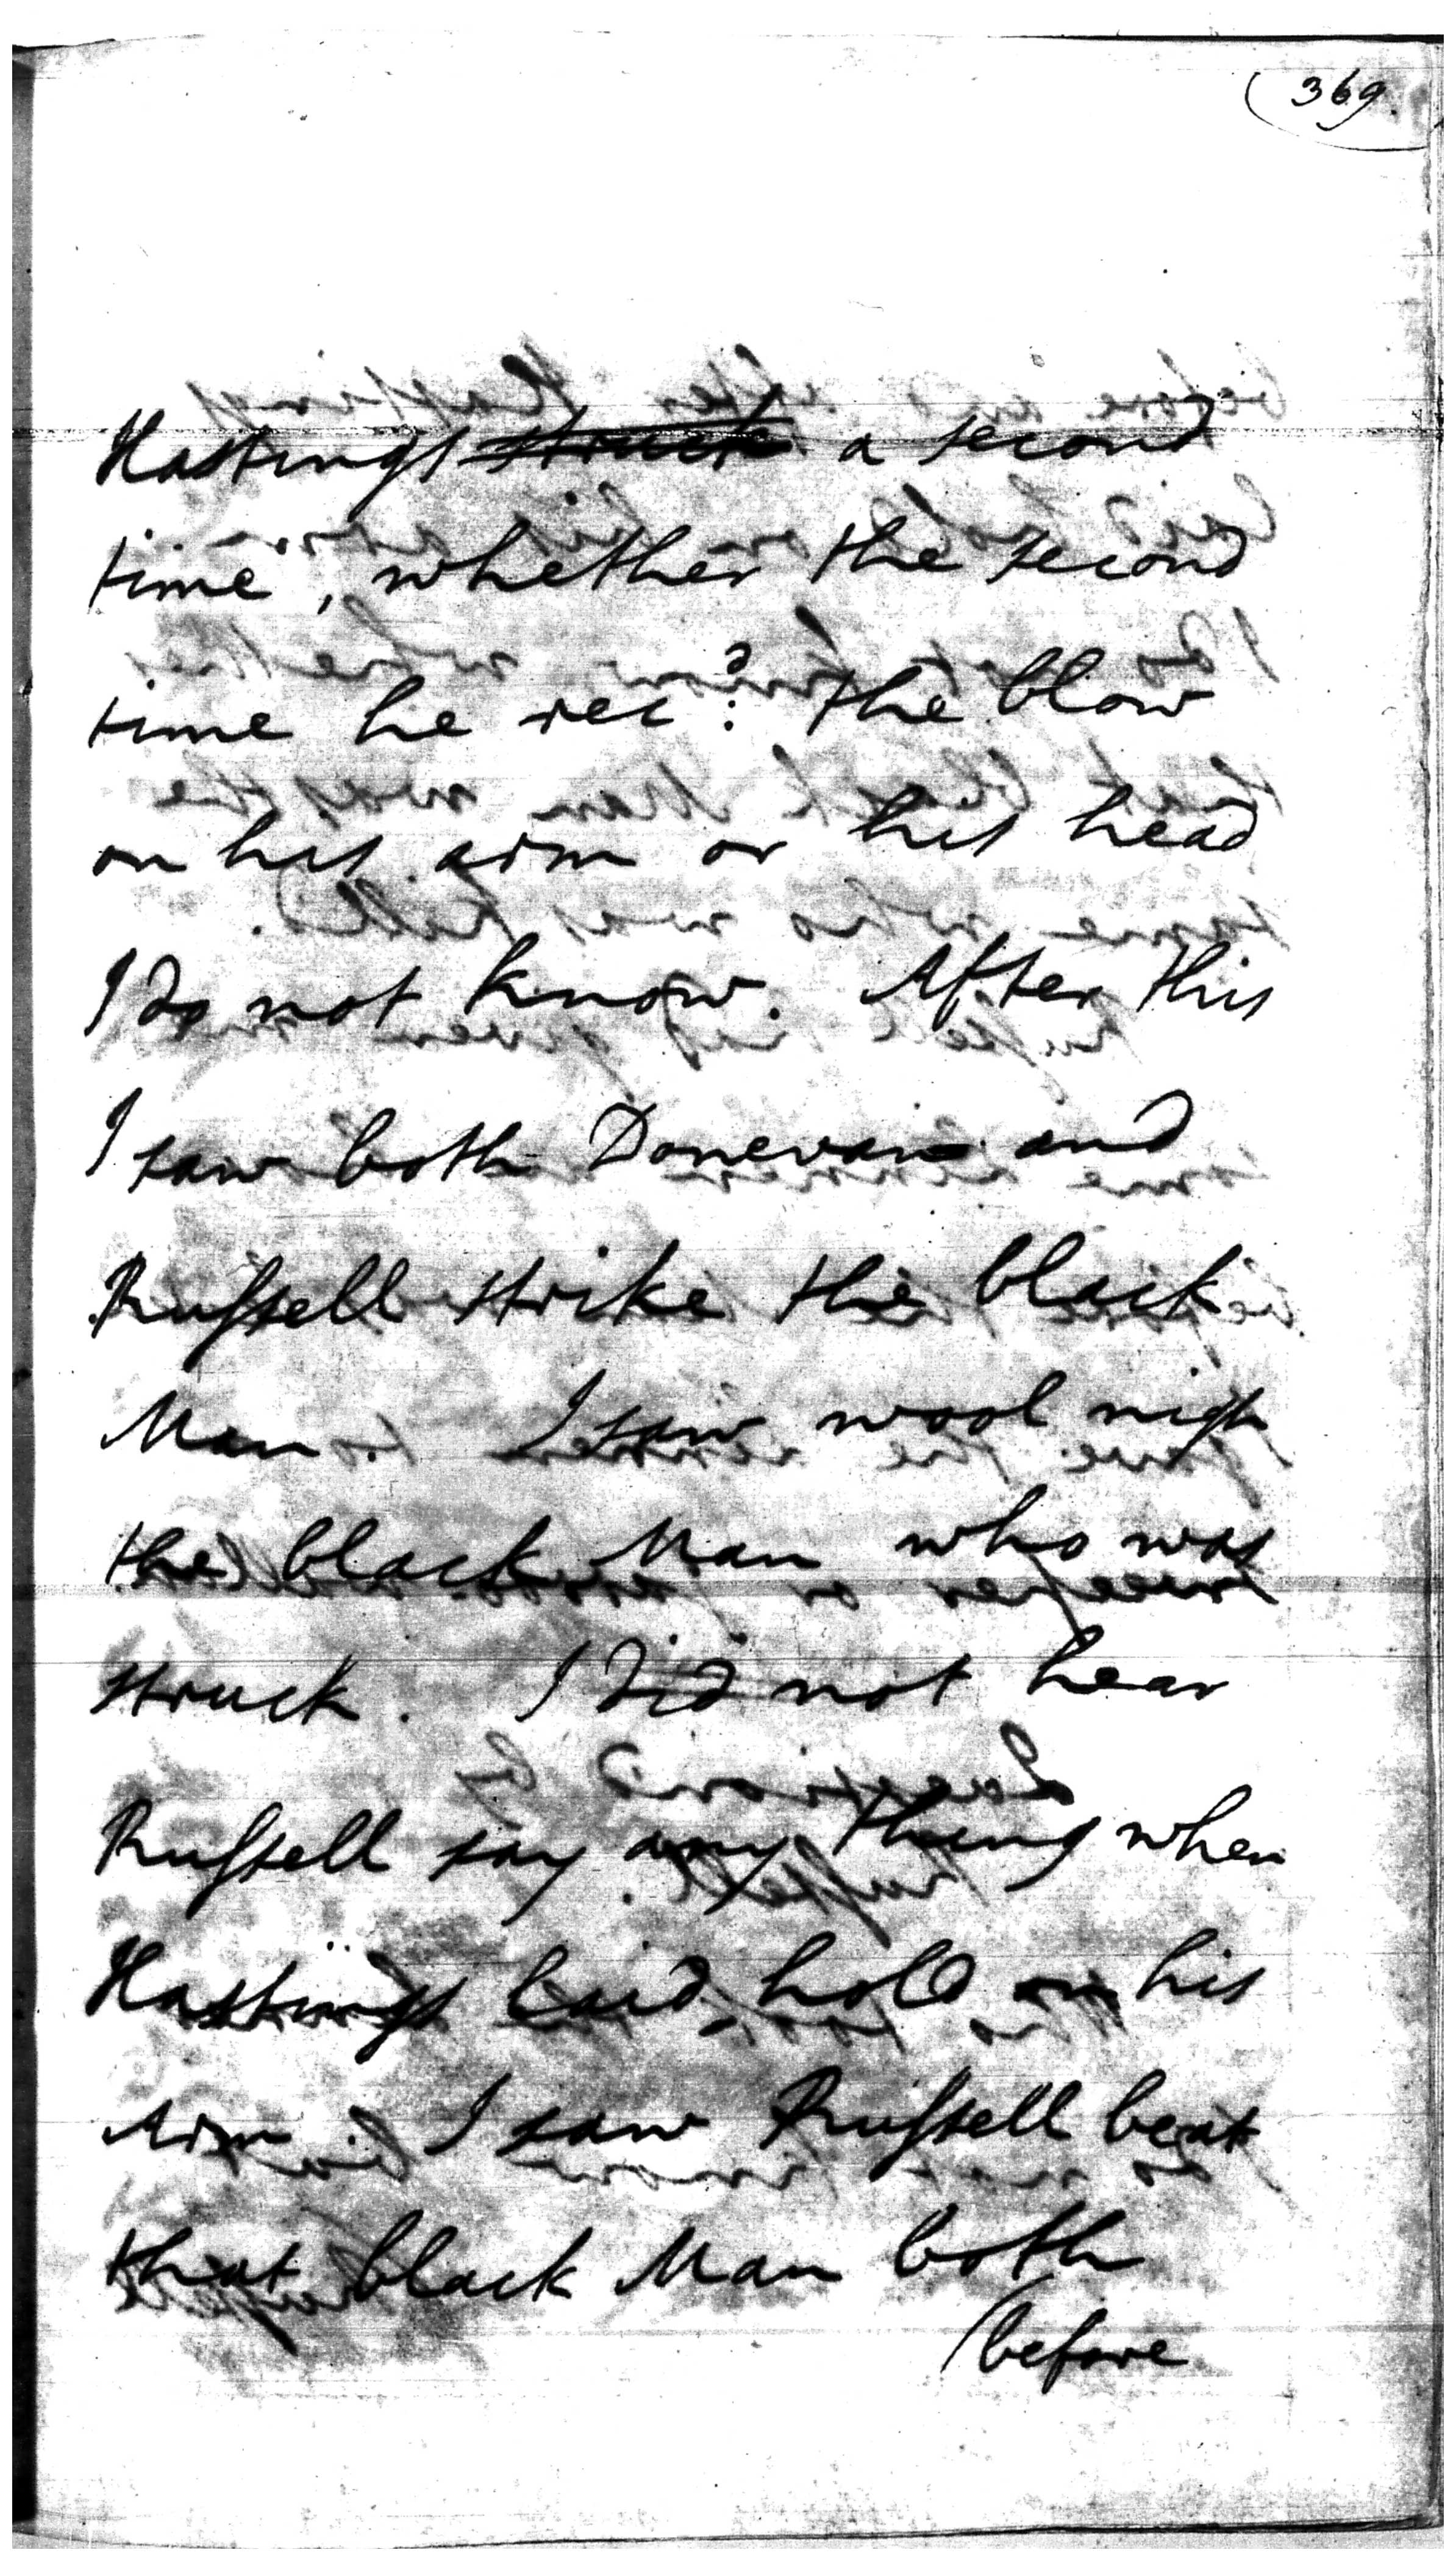 369.
Hastings struck a second
time, whether the second
time he rec:d the blow
on his arm or his head
I do not know. After this
I saw both Donevan and
Russell strike the black
Man. I saw wool nigh
the black Man who was
struck. I did not hear
Russell say any thing when
Hastings laid hold on his
Arm. I saw Russell beat
that black Man both
before